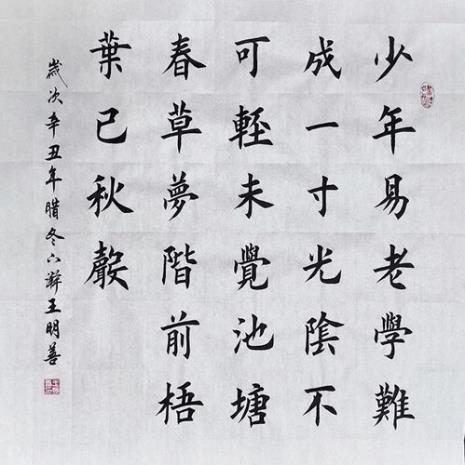 少年易老學難
成一寸光陰不
可輕未覺池塘
春草夢階前梧
葉已秋聲
歲次辛丑年腊冬王明善